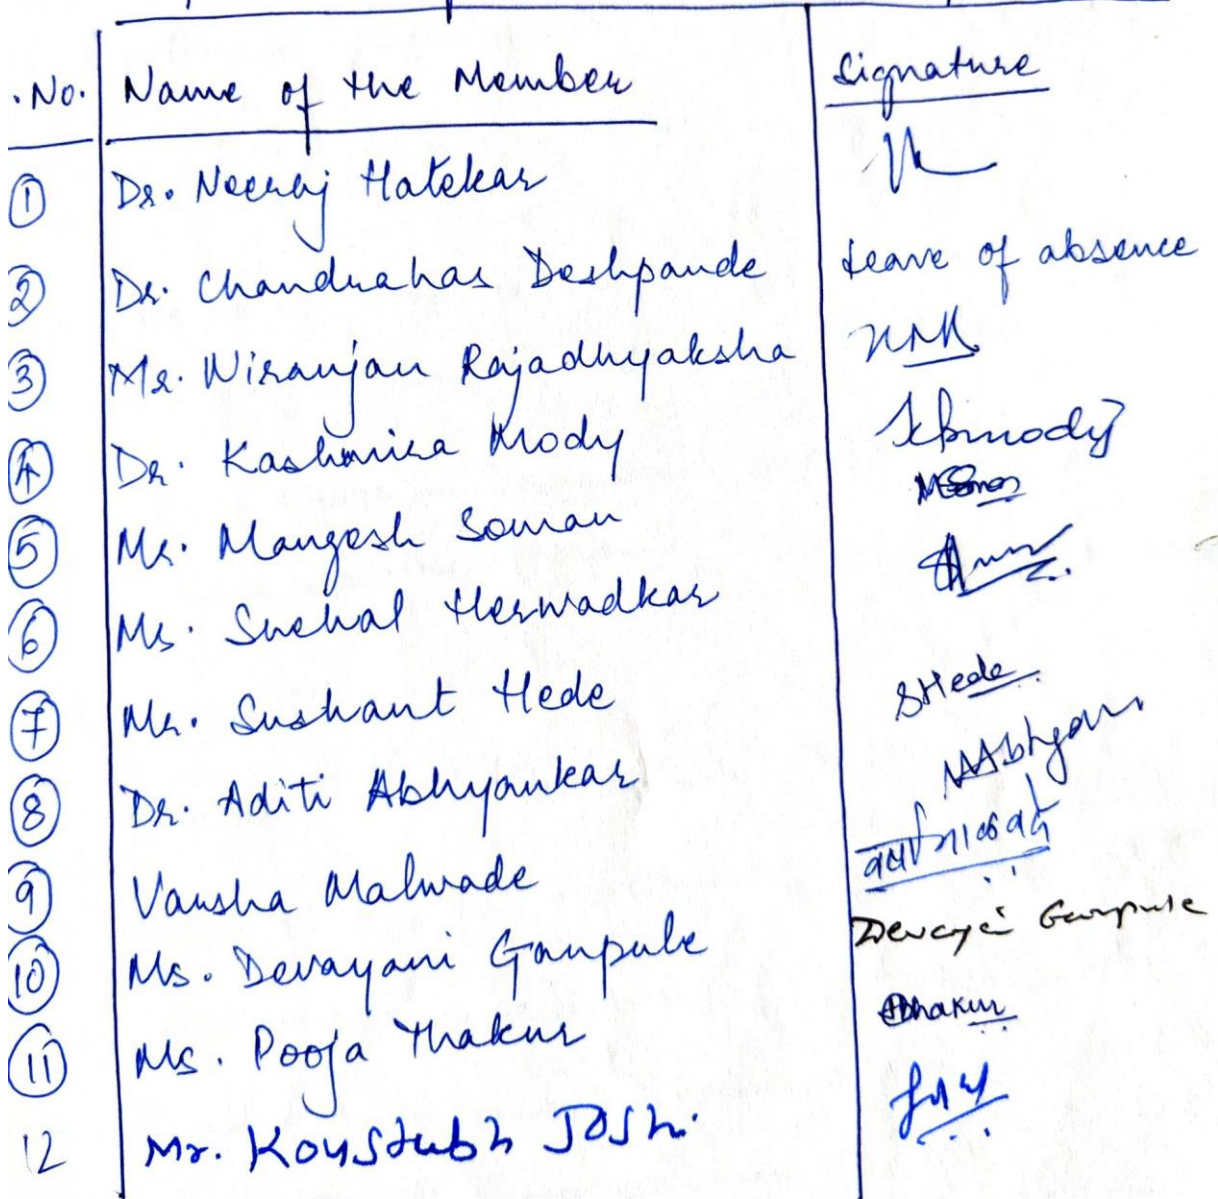 .No. Name of the Member Signature
1 Dr. Neeraj Hatekar
2 Dr. Chandrahas Deshpande Leave of absence
3 Mr. Niranjan Rajadhyaksha
4 Dr. Kashmira Mody kbmody
5 Mr. Mangesh Soman
6 Ms. Snehal Herwadkar
7 Mr. Sushant Hede SHede
8 Dr. Aditi Abhyankar
9 Varsha Malwade
10 Ms. Devayani Ganpule Devayani Ganpule
11 Ms. Pooja Thakur Pthakur
12 Mr. Koustubh Joshi